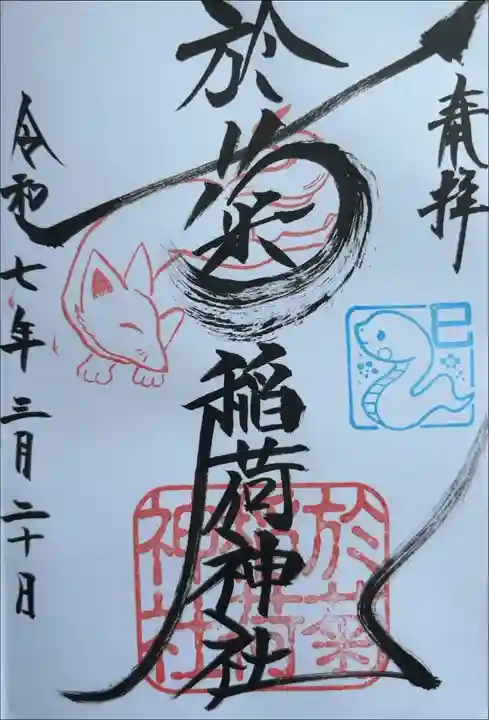 奉拝
巳
於菊稲荷神社
於菊稲荷神社
令和七年三月二十日